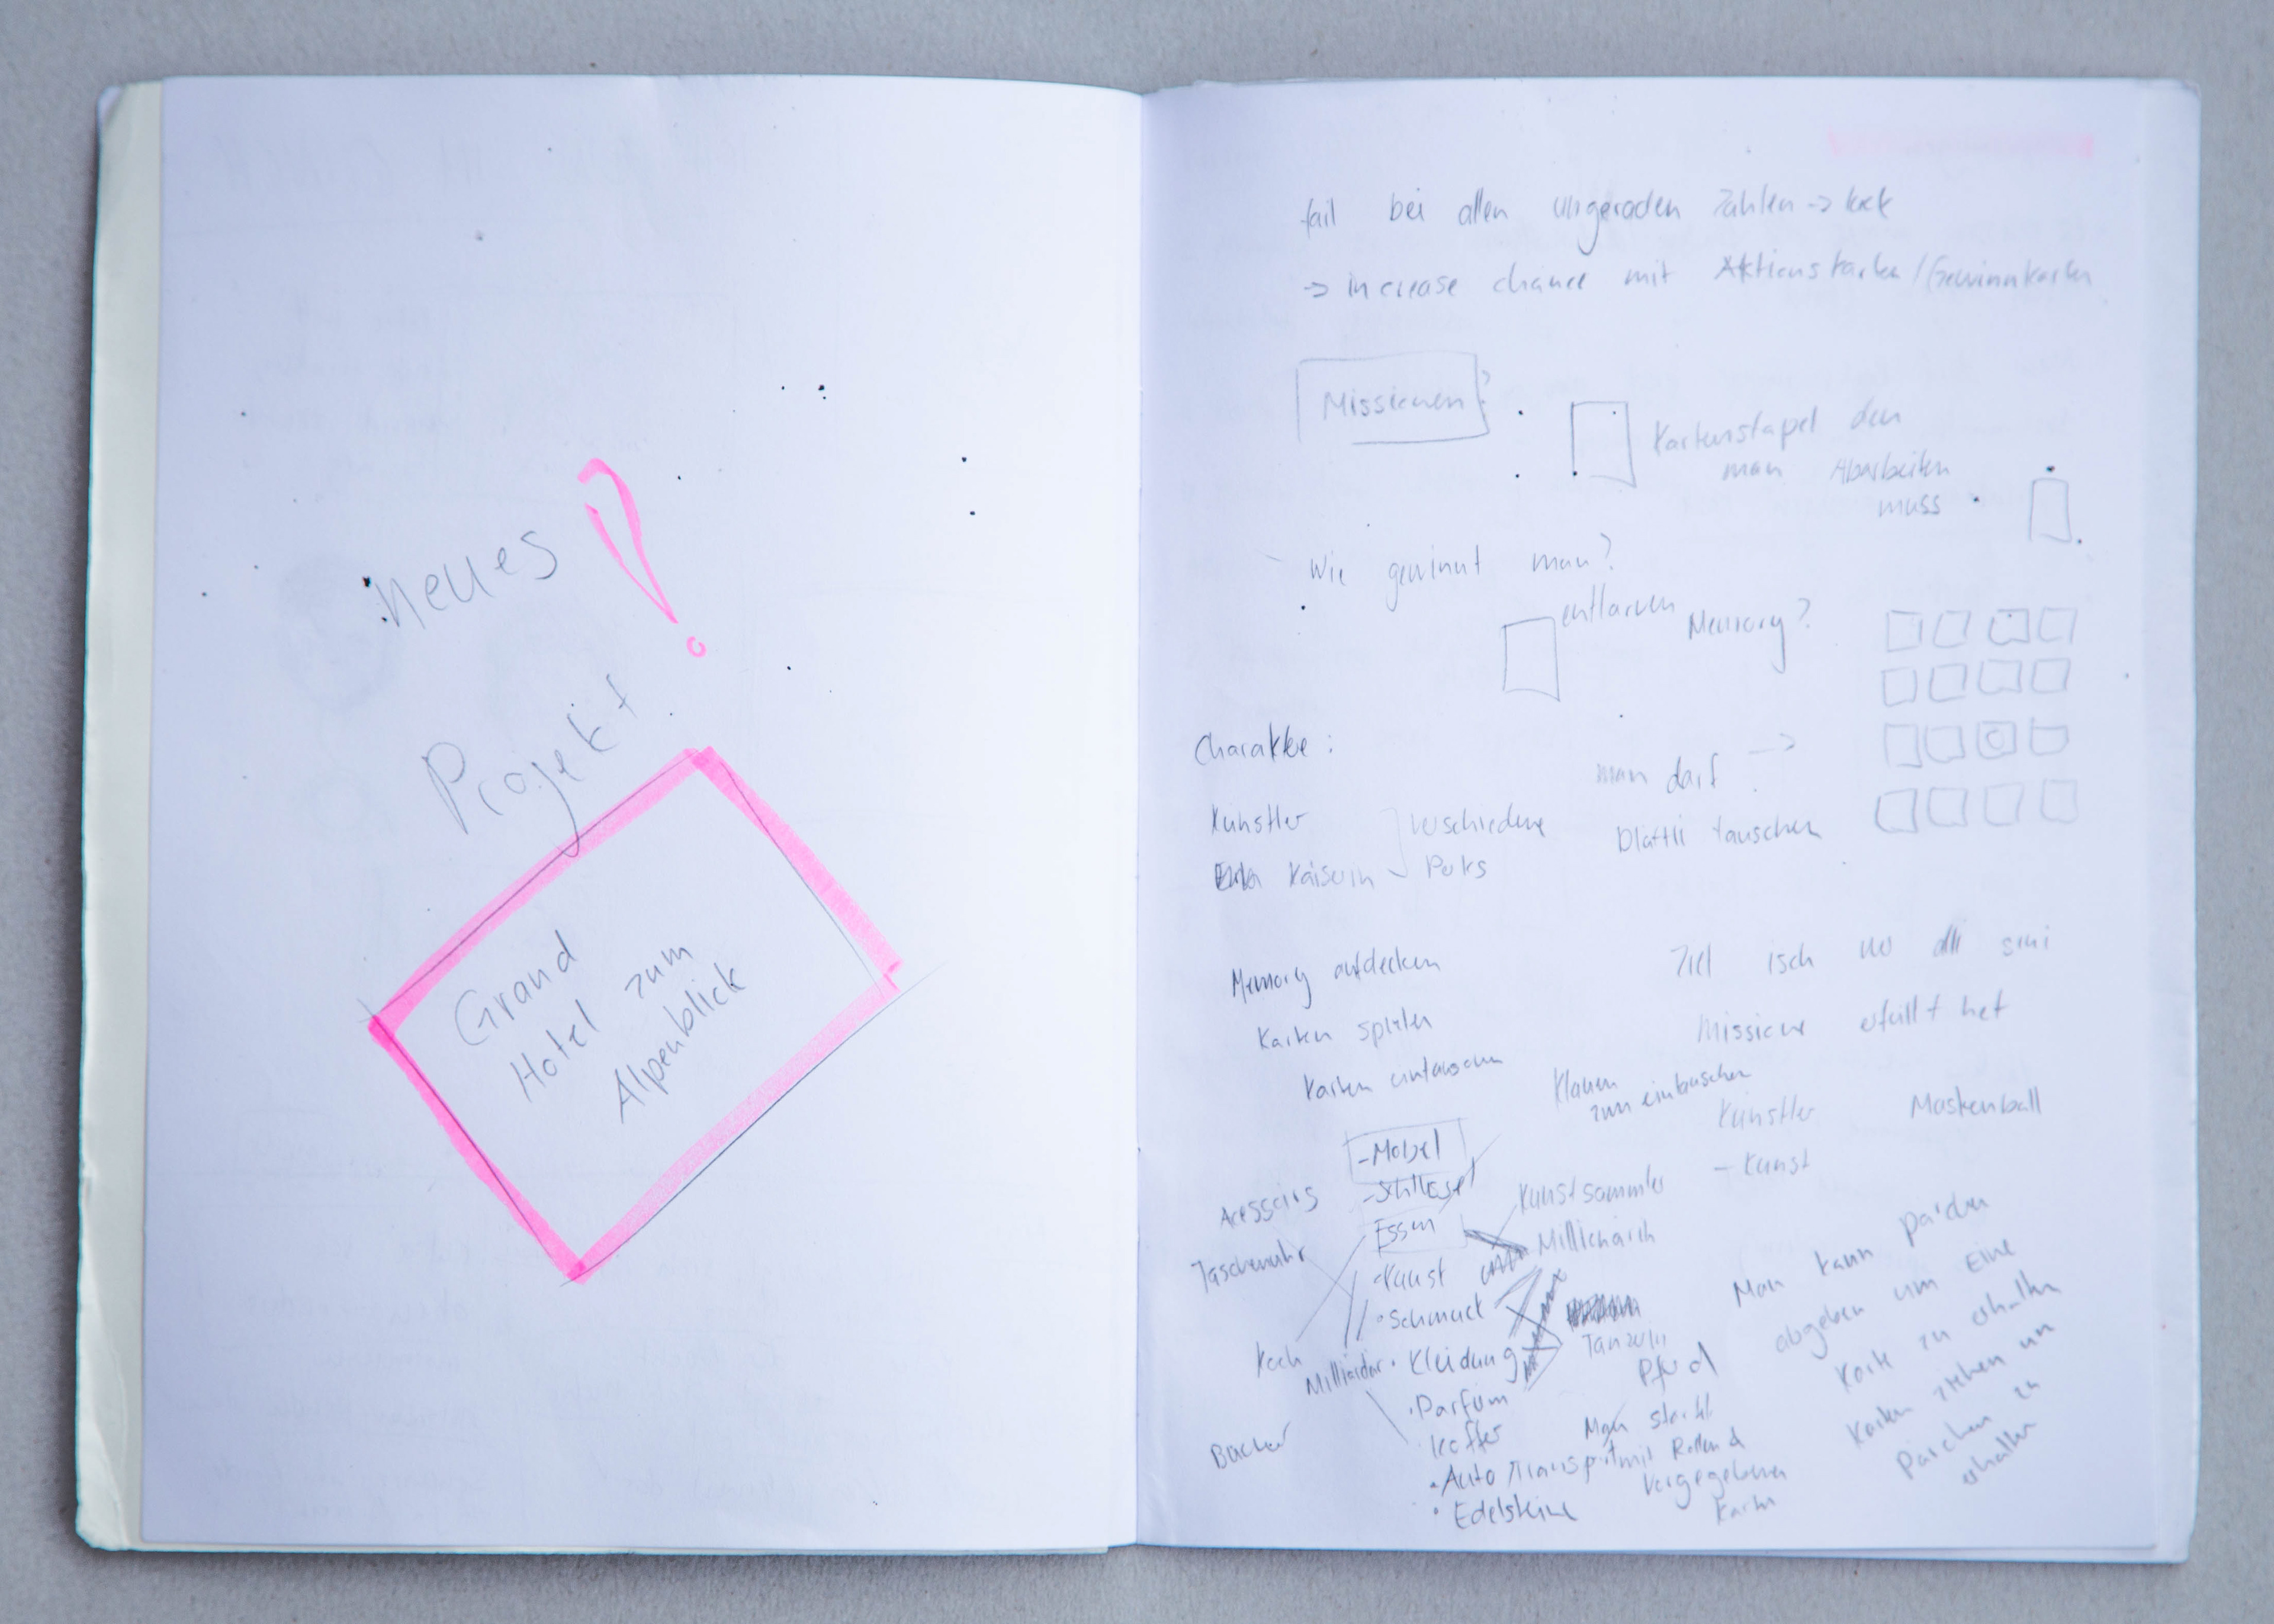 neues
Projekt
!
Grand
Hotel zum
Alpenblick
fail bei allen ungeraden Zahlen ->
-> increase chance mit /Gewinnkarten
Missionen?
Kartenstapel den
man Abarbeiten
muss
Wie gewinnt man?
entlarven
Memory?
Charaktere:
man darf ->
Künstler
verschiedene
Kaiserin
Perks
Blättli tauschen
Memory aufdecken
Karten spielen
Karten eintauschen
Ziel isch wo alli sini
Missione erfüllt het
Klauen
zum eintauschen
Künstler
Maskenball
- Kunst
- Möbel
- Schlüssel
Essen
• Kunst
• Schmuck
• Kleidung
• Parfüm
Koffer
• Auto/Transport
• Edelsteine
Taschenuhr
Koch
Milliardär
Bücher
Kunstsammler
Millionärin
Pferd
Man startet
mit Rollen &
Vorgegebenen
Karten
Man kann pärchen
abgeben um Eine
Karte zu erhalten
Karten ziehen um
Pärchen zu
erhalten